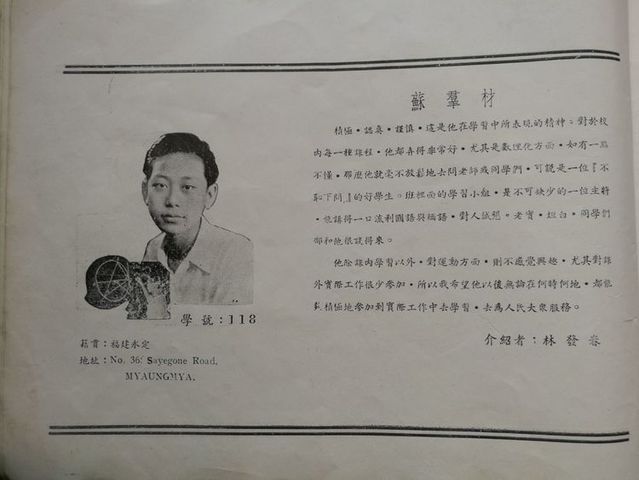 蘇羣材
積極·認真·謹慎·這是他在學習中所表現的精神。對於校
內每一種課程·他都弄得非常好·尤其是數理化方面·如有一點
不懂·那麼他就毫不放鬆地去問老師或同學們·可說是一位『不
恥下問』的好學生。班裡面的學習小組·是不可缺少的一位主將
·能講得一口流利國語與緬語·對人誠懇。老實·坦白·同學們
都和他很談得來。
他除課內學習以外·對運動方面·則不感覺興趣·尤其對課
外實際工作很少參加·所以我希望他以後無論在何時何地·都能
積極地參加到實際工作中去學習·去為人民大衆服務。
介紹者：林發春
學號：118
籍貫：福建永定
地址：No. 36 Sayegone Road,
MYAUNGMYA.